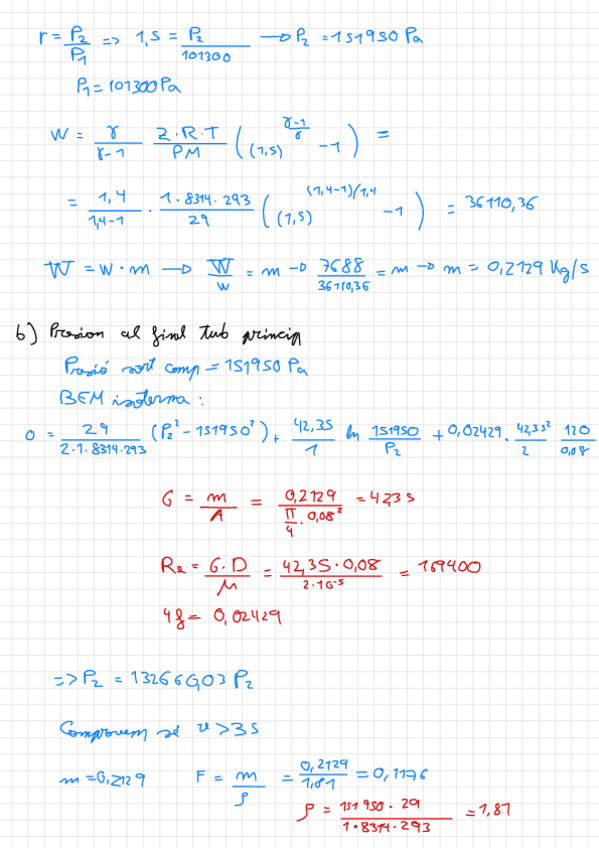 r = P₂/P₁ => 1,5 = P₂/101300 → P₂ = 151950 Pa
P₁ = 101300 Pa
W = γ/(γ-1) Z·R·T/PM ((1,5)^((γ-1)/γ) - 1) =
= 1,4/(1,4-1) · 1·8314·293/29 ((1,5)^((1,4-1)/1,4) - 1) = 36110,36
W = w·m → W/w = m → 7688/36110,36 = m → m = 0,2129 Kg/s
b) Presion al final tub princip
Presió sort comp = 151950 Pa
BEM isoterma:
0 = 29/(2·1·8314·293) (P₂² - 151950²) + 42,35/1 ln 151950/P₂ + 0,02429 · 42,35²/2 120/0,08
G = m/A = 0,2129/(π/4 · 0,08²) = 42,35
Re = G·D/μ = 42,35·0,08/2·10⁻⁵ = 169400
4f = 0,02429
=> P₂ = 132660,03 P₂
Comprovem si v > 35
m = 0,2129 F = m/ρ = 0,2129/1,81 = 0,1176
ρ = 151950·29/1·8314·293 = 1,81